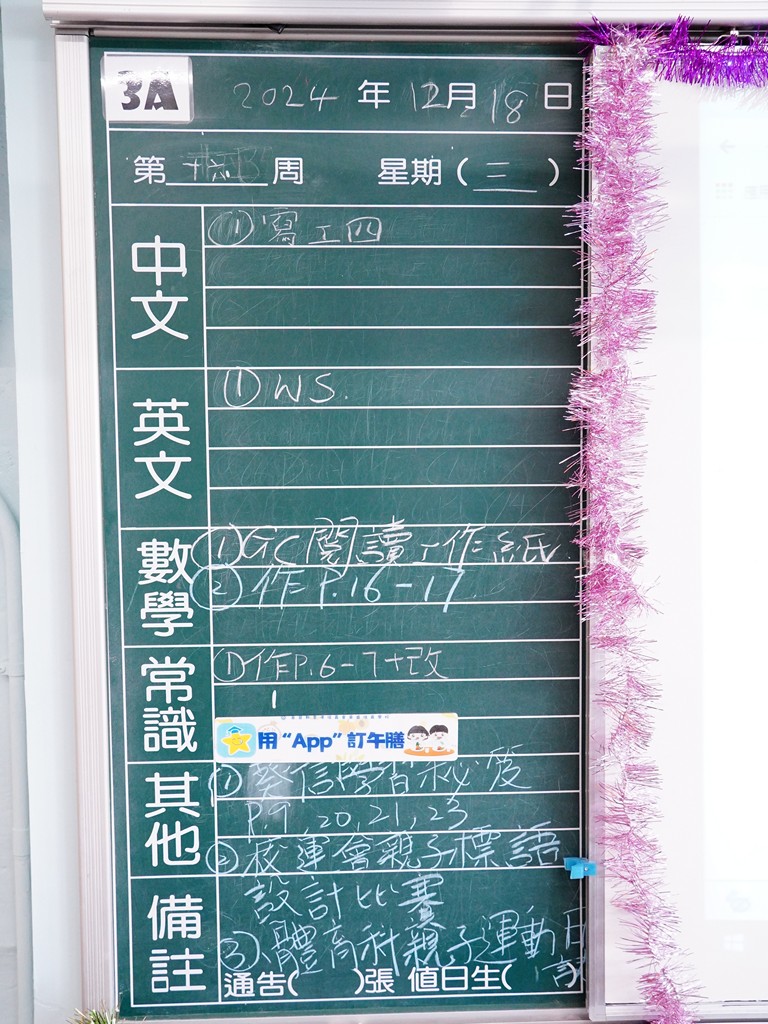 3A 2024年12月18日
第十六周 星期(三)
中文
① 寫工四
英文
① WS.
數學
① GC閱讀工作紙.
② 作P.16-17
常識
① 作P.6-7+改
用“App”訂午膳
其他
① 葵信學習秘笈
P.9, 20, 21, 23
② 校運會親子標語
備註
設計比賽
③ 體育科親子運動日
通告( )張 值日生(